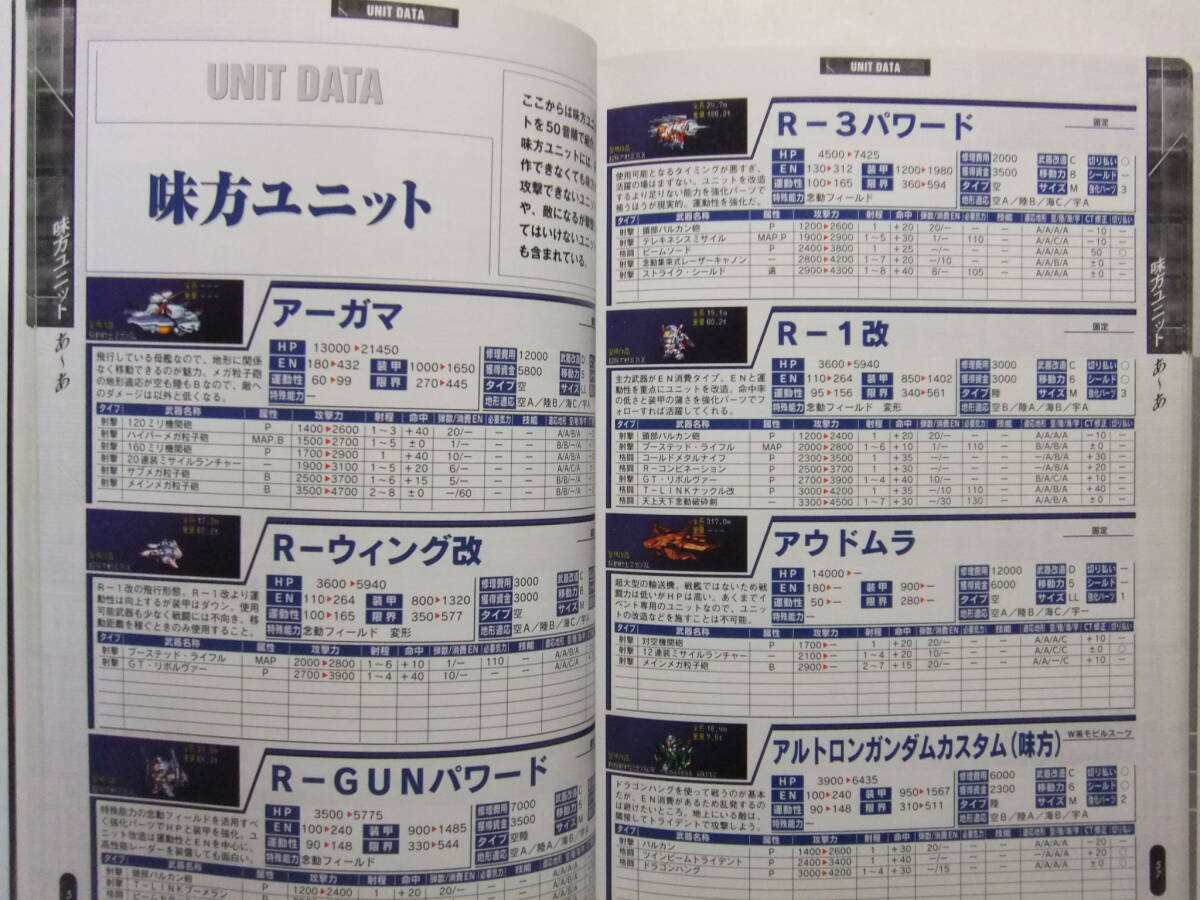 UNIT DATA
UNIT DATA
味方ユニット
ここからは味方ユニ
トを50音順で紹介
味方ユニットには、
作できなくても味方
攻撃できないユニッ
や、敵になるが撃
てはいけないユニッ
も含まれている。
味方ユニット
あ〜あ
アーガマ
飛行している母艦なので、地形に関係
なく移動できるのが魅力。メガ粒子砲
の地形適応が空も陸もBなので、敵へ
のダメージは以外と低くなる。
HP 13000▶21450
EN 180▶432 装甲 1000▶1650
運動性 60▶99 限界 270▶445
特殊能力 ―
修理費用 12000 武器改造 D
獲得資金 5800 移動力 5
タイプ 空 サイズ LL
地形適応 空A/陸B/海C/宇A
タイプ 武器名称 属性 攻撃力 射程 命中 弾数/消費EN 必要気力 技能 適応地形 空/陸/海/宇
射撃 120ミリ機関砲 P 1400▶2600 1〜3 +40 20/― ― ― A/A/B/A
射撃 ハイパーメガ粒子砲 MAP,B 1500▶2700 1〜5 ±0 1/― ― ― B/B/―/A
射撃 160ミリ機関砲 P 1700▶2900 1 +40 10/― ― ― A/A/B/A
射撃 20連装ミサイルランチャー ― 1900▶3100 1〜5 +20 6/― ― ― A/A/C/A
射撃 サブメガ粒子砲 B 2500▶3700 1〜6 +15 5/― ― ― B/B/―/A
射撃 メインメガ粒子砲 B 3500▶4700 2〜8 ±0 ―/60 ― ― B/B/―/A
R−ウィング改
R−1改の飛行形態。R−1改より運
動性は向上するが装甲はダウン。使用
可能武器も少なく戦闘には不向き。移
動距離を稼ぐときのみ使用すること。
HP 3600▶5940
EN 110▶264 装甲 800▶1320
運動性 100▶165 限界 350▶577
特殊能力 念動フィールド 変形
修理費用 3000 武器改造 C
獲得資金 3000 移動力 8
タイプ 空 サイズ M
地形適応 空A/陸B/海C/宇A
タイプ 武器名称 属性 攻撃力 射程 命中 弾数/消費EN 必要気力 技能 適応地形 空/陸/海/宇
射撃 ブーステッド・ライフル MAP 2000▶2800 1〜6 +10 1/― 110 ― A/A/B/A
射撃 GT・リボルヴァー P 2700▶3900 1〜4 +40 10/― ― ― A/A/C/A
R−GUNパワード
特殊能力の念動フィールドを活用すべ
く強化パーツでHPと装甲を強化。ユ
ニット改造は運動性とENを中心に。
高性能レーダーを装備しても面白い。
HP 3500▶5775
EN 100▶240 装甲 900▶1485
運動性 90▶148 限界 330▶544
特殊能力 念動フィールド
修理費用 7000 武器改造 C
獲得資金 3500 移動力 5
タイプ 空陸 サイズ M
地形適応 空A/陸A/海C/宇A
射撃 頭部バルカン砲 P 1200▶2400 1 +20 20/―
T−LINKブーメラン
UNIT DATA
味方ユニット
あ〜あ
R−3パワード
固定
使用可能となるタイミングが悪すぎ、
活躍の場はまずない。ユニットを改造
するより足りない能力を強化パーツで
補うほうが現実的。運動性を強化だ。
HP 4500▶7425
EN 130▶312 装甲 1200▶1980
運動性 100▶165 限界 360▶594
特殊能力 念動フィールド
修理費用 2000 武器改造 C 切り払い ○
獲得資金 3500 移動力 8 シールド ―
タイプ 空 サイズ M 強化パーツ 3
地形適応 空A/陸B/海C/宇A
タイプ 武器名称 属性 攻撃力 射程 命中 弾数/消費EN 必要気力 技能 適応地形 空/陸/海/宇 CT修正 切り払い
射撃 頭部バルカン砲 P 1200▶2600 1 +20 20/― ― ― A/A/A/A −10 ―
射撃 テレキネシスミサイル MAP,P 1900▶2900 1〜5 +30 1/― 110 ― A/A/C/A −10 ―
格闘 ビームソード P 2400▶3800 1 +25 ―/― ― ― A/A/A/A 50 ○
射撃 念動集束式レーザーキャノン ― 2800▶4200 1〜7 +20 ―/10 ― ― A/A/B/A ±0 ―
射撃 ストライク・シールド 遠 2900▶4300 1〜8 +40 8/― 105 ― A/A/A/A ±0 ―
R−1改
固定
主力武器がEN消費タイプ。ENと運
動性を重点にユニットを改造。命中率
の低さと装甲の薄さを強化パーツでフ
ォローすれば活躍してくれる。
HP 3600▶5940
EN 110▶264 装甲 850▶1402
運動性 95▶156 限界 340▶561
特殊能力 念動フィールド 変形
修理費用 3000 武器改造 C 切り払い ○
獲得資金 3000 移動力 6 シールド ○
タイプ 陸 サイズ M 強化パーツ 3
地形適応 空B/陸A/海B/宇A
タイプ 武器名称 属性 攻撃力 射程 命中 弾数/消費EN 必要気力 技能 適応地形 空/陸/海/宇 CT修正 切り払い
射撃 頭部バルカン砲 P 1200▶2400 1 +20 20/― ― ― A/A/A/A −10 ―
射撃 ブーステッド・ライフル MAP 2000▶2800 1〜6 +10 1/― 110 ― B/A/B/A ±0 ―
格闘 コールドメタルナイフ P 2300▶3500 1 +35 ―/― ― ― A/A/B/A +30 ―
格闘 R−コンビネーション P 2500▶3700 1 +30 ―/― ― ― A/A/B/A +20 ―
射撃 GT・リボルヴァー P 2700▶3900 1〜4 +40 10/― ― ― B/A/C/A +10 ―
格闘 T−LINKナックル改 P 3000▶4200 1 +35 ―/10 110 ― A/A/B/A +40 ―
格闘 天上天下念動破砕剣 3300▶4500 1〜7 +30 ―/30 130 ― A/A/B/A ±0 ―
アウドムラ
固定
超大型の輸送機。戦艦ではないため戦
闘力は低いがHPは高い。あくまでイ
ベント専用のユニットなので、ユニッ
トの改造などを施すことは不可能。
HP 14000▶―
EN 180▶― 装甲 900▶―
運動性 50▶― 限界 280▶―
特殊能力 ―
修理費用 12000 武器改造 D 切り払い ―
獲得資金 6000 移動力 5 シールド ―
タイプ 空 サイズ LL 強化パーツ 1
地形適応 空A/陸B/海C/宇―
タイプ 武器名称 属性 攻撃力 射程 命中 弾数/消費EN 必要気力 技能 適応地形 空/陸/海/宇 CT修正 切り払い
射撃 対空機関砲 P 1700▶― 1 +20 20/― ― ― A/A/A/C +10 ―
射撃 12連装ミサイルランチャー ― 2100▶― 1〜4 +20 10/― ― ― A/A/C/C ±0 ○
射撃 メインメガ粒子砲 B 2900▶― 2〜7 +15 20/― ― ― A/A/―/C +10 ―
アルトロンガンダムカスタム(味方)
W系モビルスーツ
ドラゴンハングを使って戦うのが基本
だが、EN消費があるため乱発するの
は避けたいところ。地上にいる敵は、
隣接してトライデントで攻撃しよう。
HP 3900▶6435
EN 100▶240 装甲 950▶1567
運動性 90▶148 限界 310▶511
特殊能力 ―
修理費用 6000 武器改造 C 切り払い ○
獲得資金 2300 移動力 6 シールド ○
タイプ 陸 サイズ M 強化パーツ 2
地形適応 空B/陸A/海B/宇A
タイプ 武器名称 属性 攻撃力 射程 命中 弾数/消費EN 必要気力 技能 適応地形 空/陸/海/宇 CT修正 切り払い
射撃 バルカン P 1400▶2600 1 +30 20/― ― ― A/A/A/A −20 ―
格闘 ツインビームトライデント P 2400▶3400 1 +40 ―/― ― ― A/A/―/A +20 ○
格闘 ドラゴンハング P 3000▶4200 1〜4 +30 ―/15 ― ― A/A/B/A ±0 ○
57